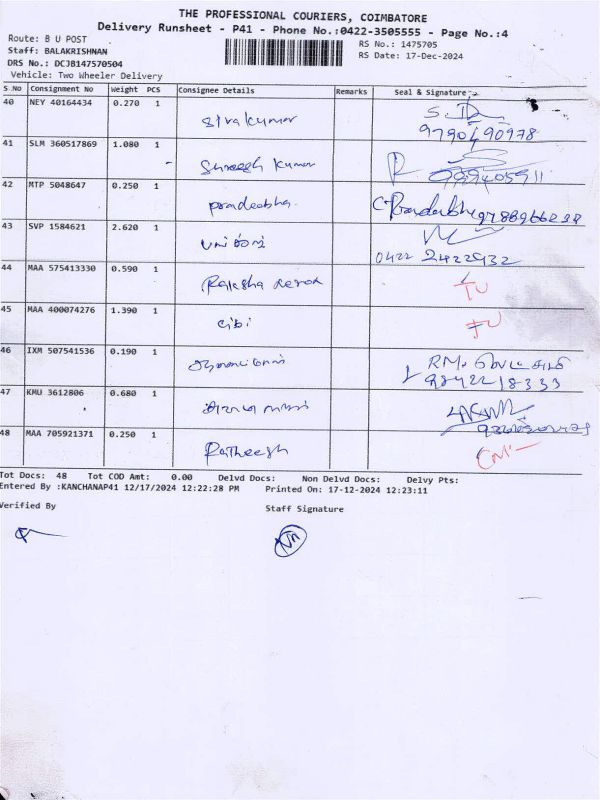 THE PROFESSIONAL COURIERS, COIMBATORE
Delivery Runsheet - P41 - Phone No.:0422-3505555 - Page No.:4
Route: B U POST
RS No.: 1475705
Staff: BALAKRISHNAN
RS Date: 17-Dec-2024
DRS No.: DCJB147570504
Vehicle: Two Wheeler Delivery
S.No Consignment No Weight PCS Consignee Details Remarks Seal & Signature
40 NEY 40164434 0.270 1 sivakumar
9790490978
41 SLM 360517869 1.080 1 Suresh Kumar
42 MTP 5048647 0.250 1 pradeebha
43 SVP 1584621 2.620 1
0422 2422932
44 MAA 575413330 0.590 1 Raksha xerox
45 MAA 400074276 1.390 1 cibi
46 IXM 507541536 0.190 1
9842218333
47 KMU 3612806 0.680 1
48 MAA 705921371 0.250 1 Ratheesh
Tot Docs: 48 Tot COD Amt: 0.00 Delvd Docs: Non Delvd Docs: Delvy Pts:
Entered By :KANCHANAP41 12/17/2024 12:22:28 PM Printed On: 17-12-2024 12:23:11
Verified By
Staff Signature